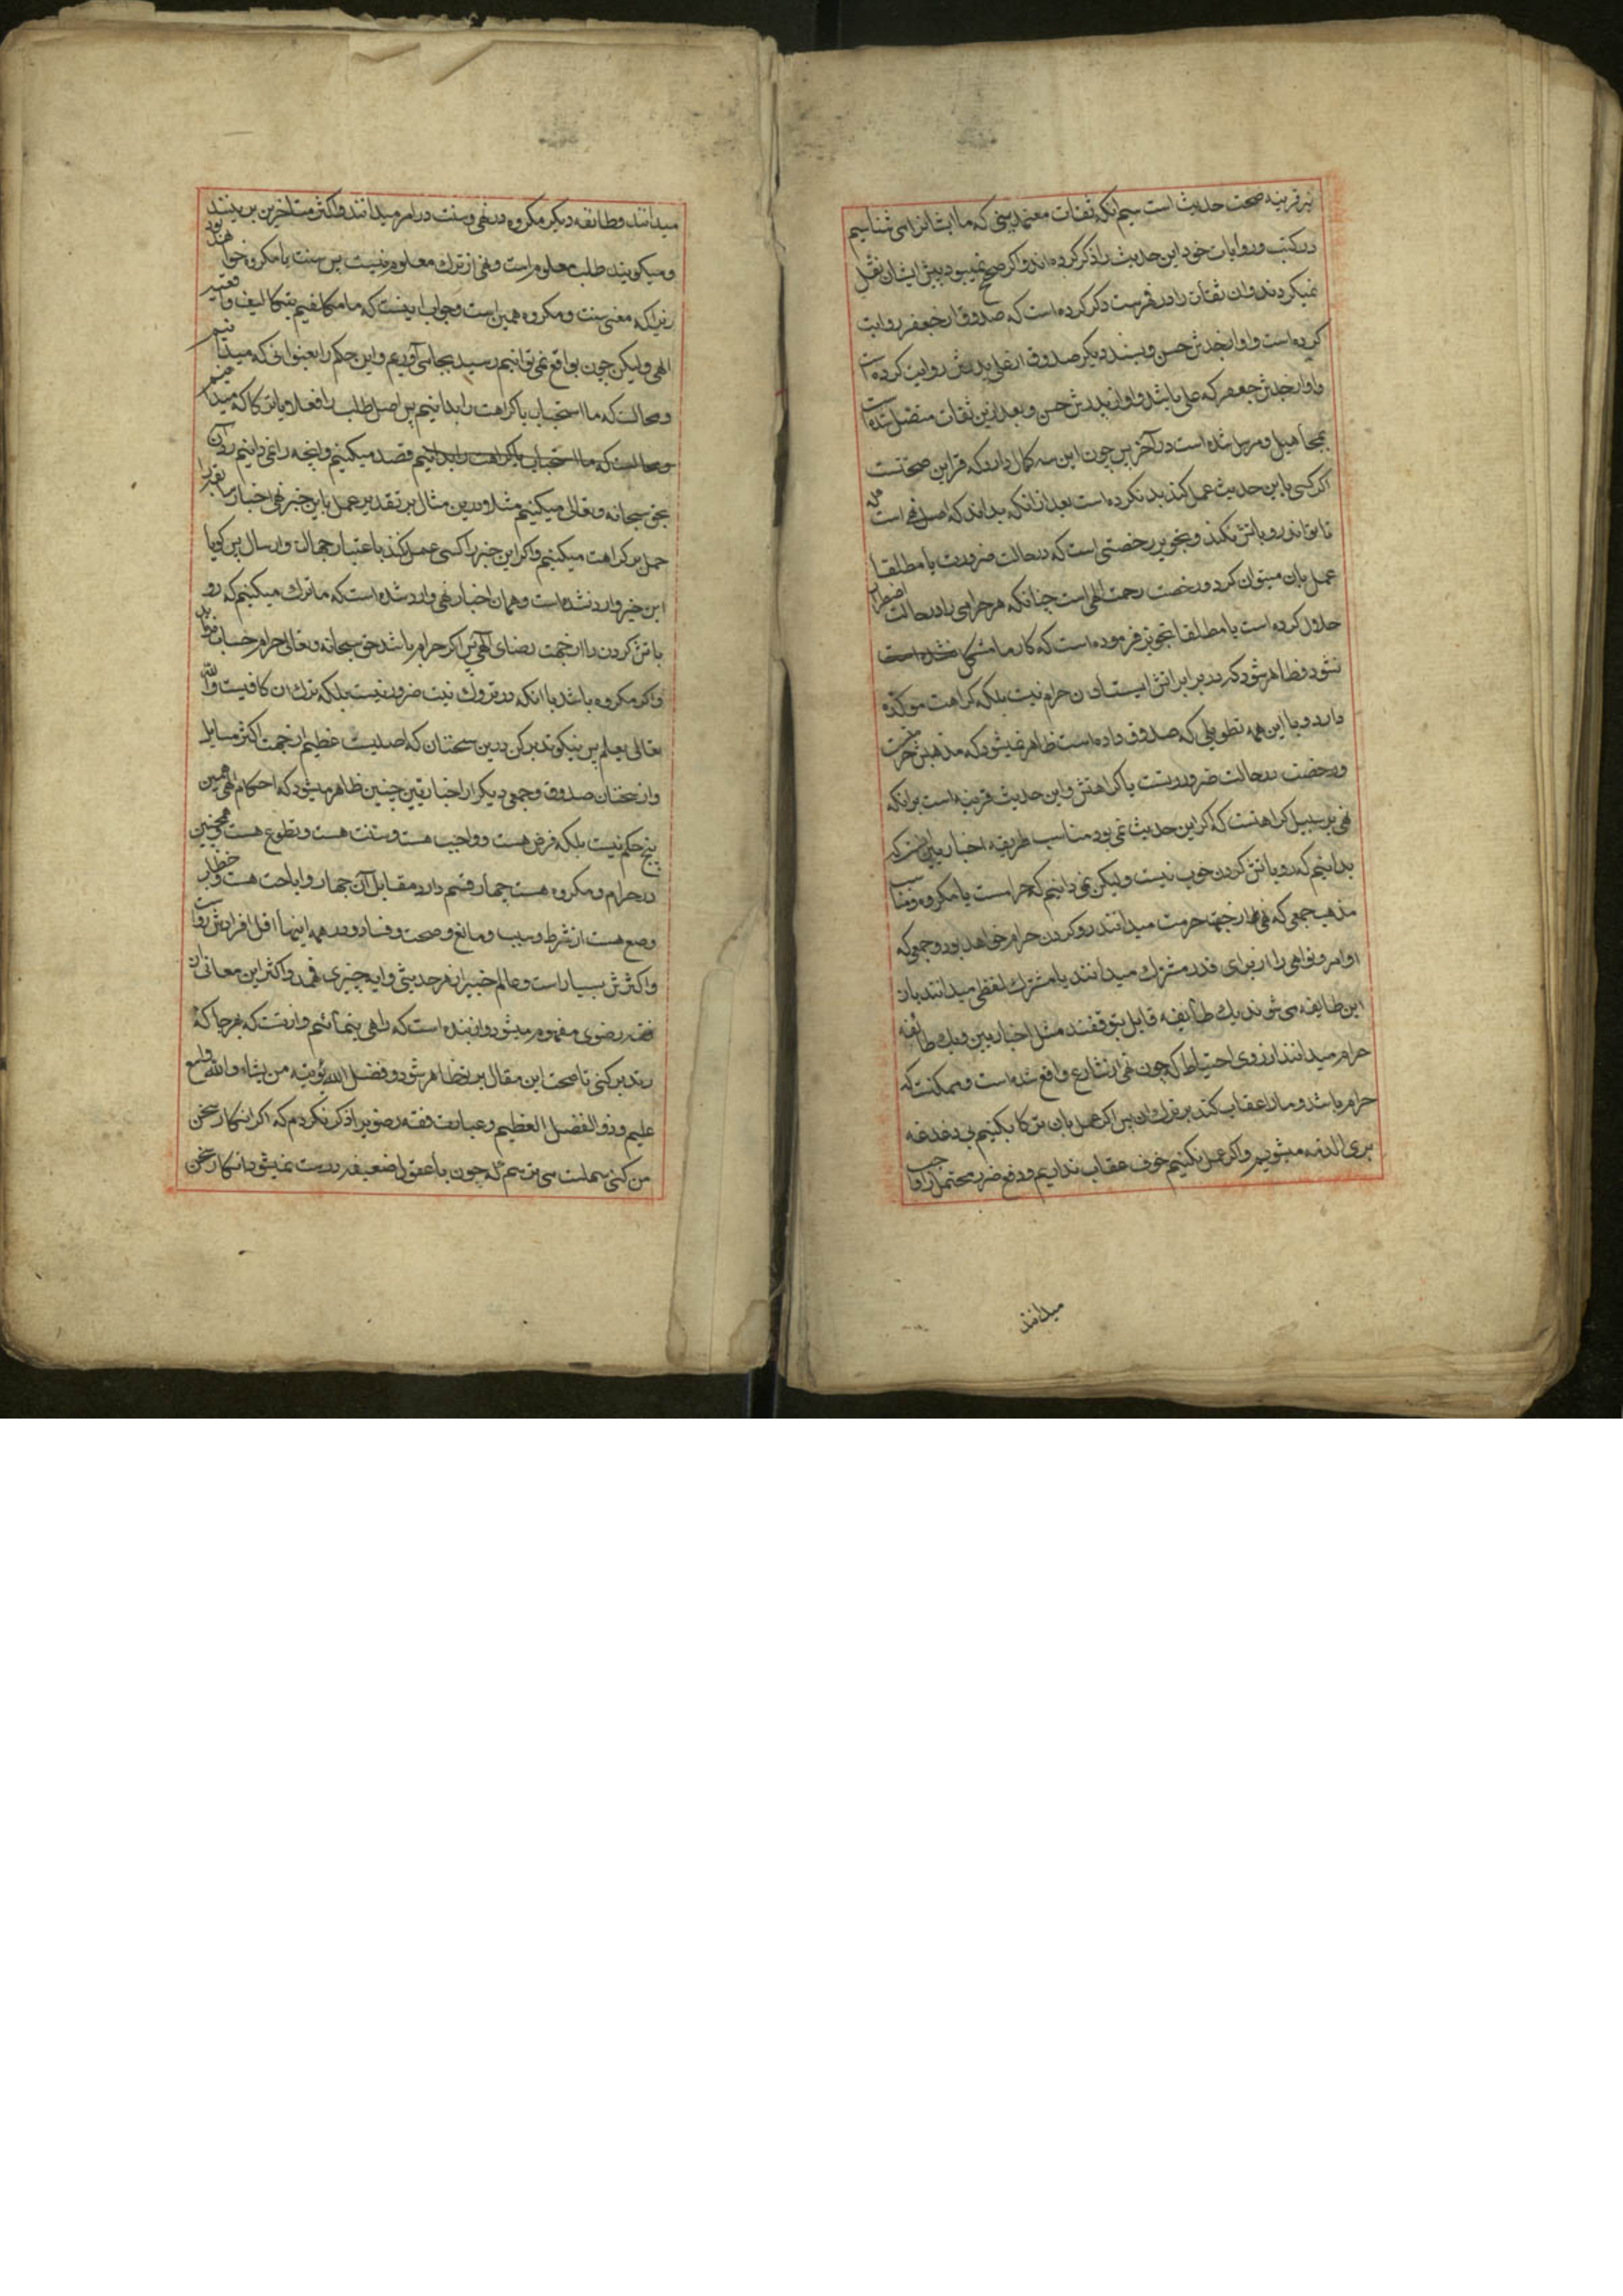 نیز قرینه صحت حدیث است سیم آنکه ثقات معتمدینی که ما ایشانرا می شناسیم
در کتب و روایات خود این حدیث را ذکر کرده اند و اگر صحیح نمیبود پیش ایشان نقل
نمیکردند و ان ثقات را در فهرست ذکر کرده است که صدوق از جعفر روایت
کرده است و او از جدش حسن و بسند دیگر صدوق از علی پدرش روایت کرده است
و او از جدش جعفر که علی باشد و او از پدرش حسن و بعد ازین ثقات متصل شده است
بمجاهیل و مرسل شده است در آخر پس چون این سه کمال دارد که قراین صحتست
اگر کسی باین حدیث عمل کند بد نکرده است بعد از آنکه بداند که اصل نهی است
تا تواند رو باتش نکند و تجویز رخصتی است که در حالت ضرورت یا مطلقا
عمل بان میتوان کرد و رخصت رحمت الهی است چنانکه هر حرامی را در حالت اضطرار
حلال کرده است یا مطلقا تجویز فرموده است که کار ما مشکل نشده است
نشود و ظاهر شود که در برابر اتش ایستادن حرام نیست بلکه کراهت موکده
دارد و با این همه تطویلی که صدوق داده است ظاهر نمیشود که مذهبش حرمتست
و رخصت در حالت ضرورتست یا کراهتش و این حدیث قرینه است برانکه
نهی بر سبیل کراهتست که اگر این حدیث نمی بود مناسب طریقه اخباریین است که
بدانیم که رو باتش کردن خوب نیست و لیکن نمی دانیم که حرامست یا مکروه و مناسب
مذهب جمعی که نهی را از جهة حرمت میدانند رو کردن حرام خواهد بود و جمعی که
اوامر و نواهی را از برای قدر مشترك میدانند یا مشترك لفظی میدانند بان
این طایفه می شوند یك طایفه قایل بتوقفند مثل اخباریین و یك طائفه
حرام میدانند از روی احتیاط که چون نهی از شارع واقع شده است و ممکنست که
حرام باشد و ما را عقاب کند بر ترك ان پس اگر عمل بان ترکا بکنیم بی دغدغه
بری الذمه میشویم و اگر عمل نکنیم خوف عقاب نداریم و دفع ضرر محتمل را واجب
میدانند
میدانند و طایفه دیگر مکروه در نهی و سنت در امر میدانند و اکثر متاخرین برینند
و میکویند طلب معلوم است و نهی از ترك معلوم نیست پس سنت یا مکروه خواهند بود
زیرا که معنی سنت و مکروه همین است و جواب اینست که ما مکلفیم بتکالیف واقعیه
الهی و لیکن چون بواقع نمی توانیم رسید بجا می آوریم و این حکم را بعنوانی که میدانیم
و محالست که ما استحباب یا کراهت را بدانیم پس اصل طلب را فعلا و یا ترکا که میدانیم
و محالست که ما استحباب یا کراهت را بدانیم قصد میکنیم و آنچه را نمی دانیم رد آن
بحق سبحانه و تعالی میکنیم مثلا درین مثال بر تقدیر عمل باین خبر نهی اخبار سابقه را
حمل بر کراهت میکنیم و اگر این خبر را کسی عمل نکند باعتبار جهالت و ارسال پس کویا
این خبر وارد نشده است و همان اخبار نهی وارد شده است که ما ترك میکنیم که رو
باتش کردن را از جهت رضای الهی پس اگر حرام باشد حق سبحانه و تعالی حرام حساب فرماید
و اگر مکروه باشد با آنکه در تروك نیت ضرور نیست بلکه ترك ان کافیست والله
تعالی یعلم پس نیکو تدبر کن درین سخنان که اصلیست عظیم از جهت اکثر مسایل
و از سخنان صدوق و جمعی دیگر از اخباریین چنین ظاهر میشود که احکام الهی همین
پنج حکم نیست بلکه فرض هست و واجب هست و سنت هست و تطوع هست و همچنین
در حرام و مکروه هست چهار قسم دارد مقابل آن چهار و اباحت هست و خطاب
وضع هست از شرط و سبب و مانع و صحت و فساد و در همه اینها اقل افرادش رواست
و اکثرش بسیار است و عالم خبیر از هر حدیثی و ایه چیزی فهمد و اکثر این معانی از
فقه رضوی مفهوم میشود و از بنده است که راهی بنماییم و از تست که هر جا که
رو تدبر کنی تا صحت این مقال بر تو ظاهر شود و فضل الله یؤتیه من یشاء والله واسع
علیم و ذو الفضل العظیم و عبارت فقه رضویرا ذکر نکردم که اگر انکار سخن
من کنی سهلست می ترسم که چون با عقول ضعیفه درست نمیشود انکار سخن